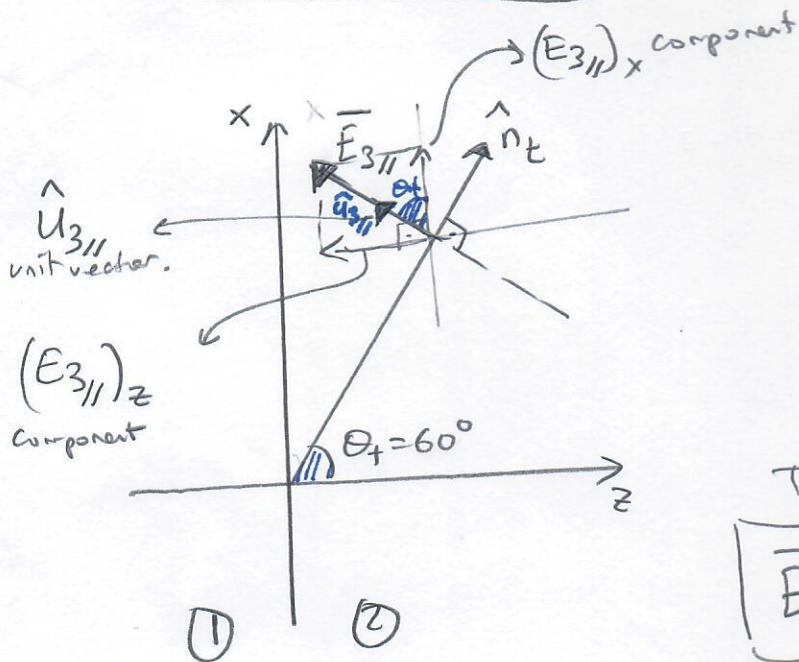 (E₃//)ₓ component
x
Ē₃//
n̂ₜ
θₜ
û₃//
û₃//
unit vector.
(E₃//)_z
component
θₜ = 60°
z
E
① ②